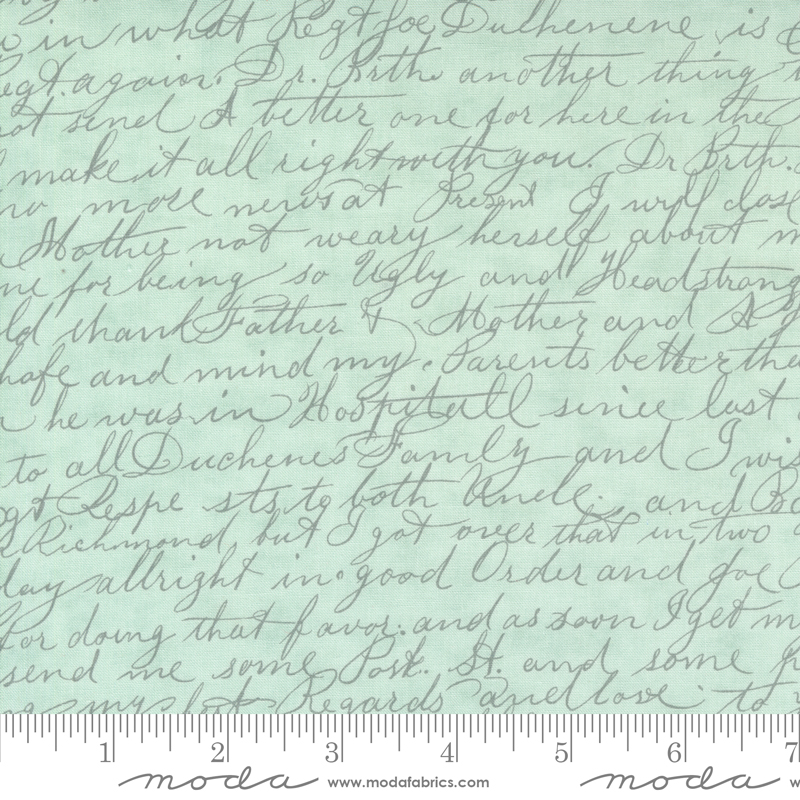 in what Regt Joe Duchenene is
Regt. again. Dr. Brth. another thing
not send A better one for here in the
make it all right with you. Dr Brth.
no more news at Present I will close
Mother not weary herself about m
me for being so Ugly and Headstrong
ld thank Father & Mother and A
hafe and mind my. Parents better tha
he was in Hospitall since last
to all Duchenes Family and I wis
gt Respe sts to both Uncle. and Bo
Richmond, but I got over that in two
day allright in good Order and Joe
for doing that favor: and as soon I get m
send me some Post. St. and some p
my Regards and love to
1 2 3 4 5 6 7
moda www.modafabrics.com moda w